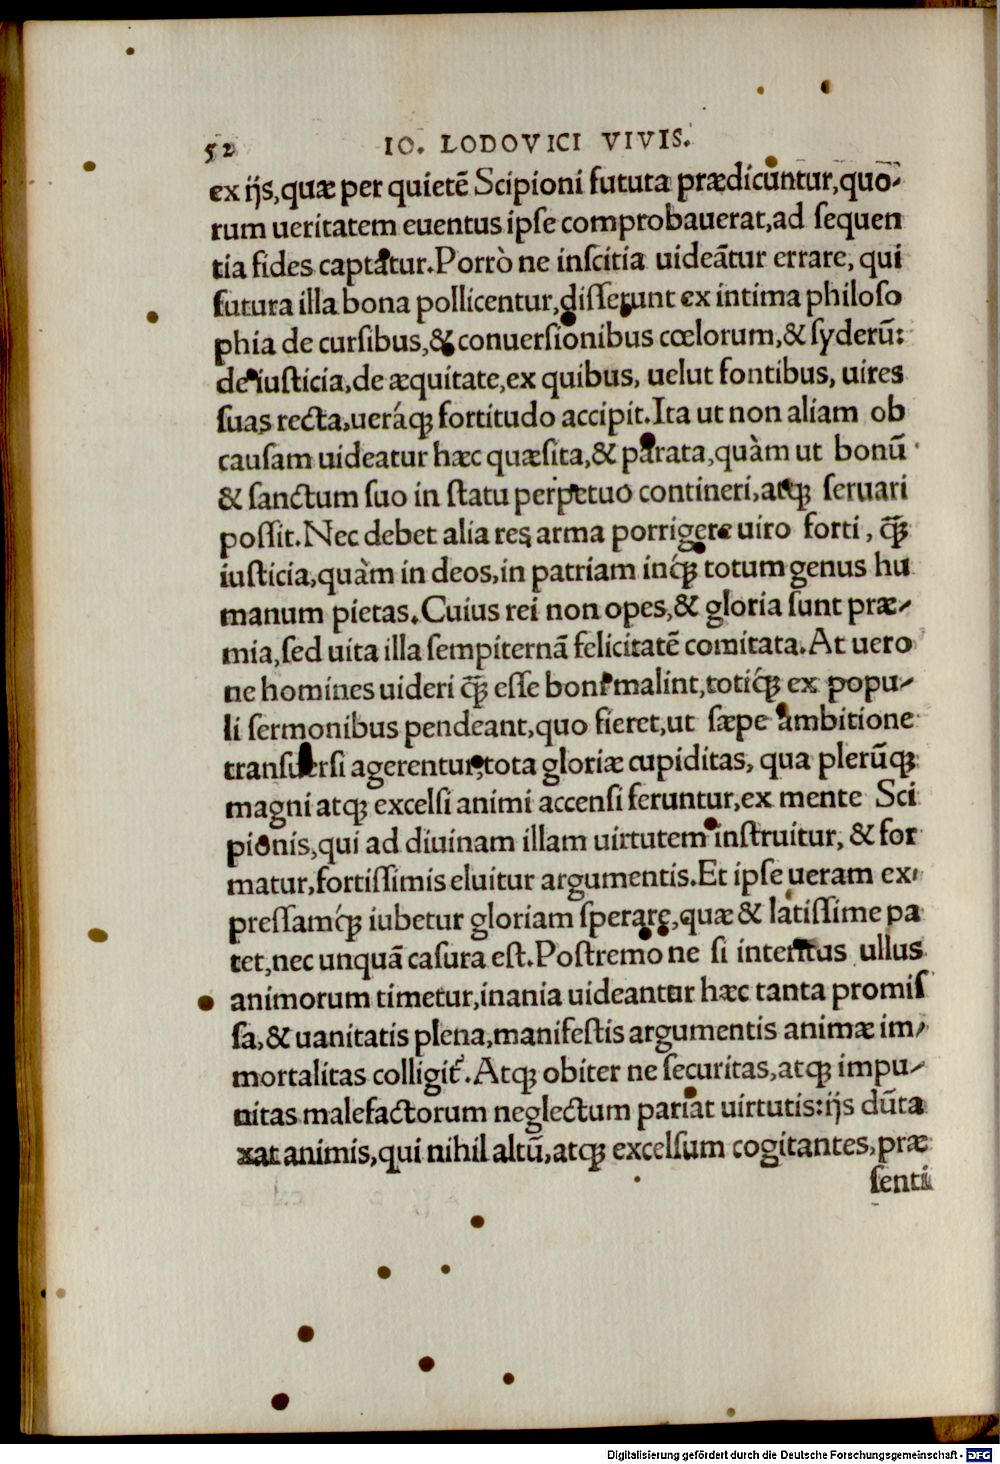 52 IO. LODOVICI VIVIS.
ex ijs, quæ per quietē Scipioni fututa prædicuntur, quo-
rum ueritatem euentus ipse comprobauerat, ad sequen
tia fides captatur. Porrò ne inscitia uideātur errare, qui
futura illa bona pollicentur, disserunt ex intima philoso
phia de cursibus, & conuersionibus cœlorum, & syderū:
de iusticia, de æquitate, ex quibus, uelut fontibus, uires
suas recta, ueráq; fortitudo accipit. Ita ut non aliam ob
causam uideatur hæc quæsita, & parata, quàm ut bonū
& sanctum suo in statu perpetuo contineri, atq; seruari
possit. Nec debet alia res arma porrigere uiro forti, q̄ꝫ
iusticia, quàm in deos, in patriam inq́; totum genus hu
manum pietas. Cuius rei non opes, & gloria sunt præ-
mia, sed uita illa sempiternā felicitatē comitata. At uero
ne homines uideri q̄ꝫ esse boni malint, totiq́; ex popu-
li sermonibus pendeant, quo fieret, ut sæpe ambitione
transuersi agerentur, tota gloriæ cupiditas, qua plerūq;
magni atq; excelsi animi accensi feruntur, ex mente Sci
pionis, qui ad diuinam illam uirtutem instruitur, & for
matur, fortissimis eluitur argumentis. Et ipse ueram ex-
pressamq́; iubetur gloriam sperare, quæ & latissime pa
tet, nec unquā casura est. Postremo ne si interitus ullus
animorum timetur, inania uideantur hæc tanta promis
sa, & uanitatis plena, manifestis argumentis animæ im-
mortalitas colligit᷑. Atq; obiter ne securitas, atq; impu-
nitas malefactorum neglectum pariat uirtutis: ijs dūta
xat animis, qui nihil altū, atq; excelsum cogitantes, præ
senti
Digitalisierung gefördert durch die Deutsche Forschungsgemeinschaft - DFG